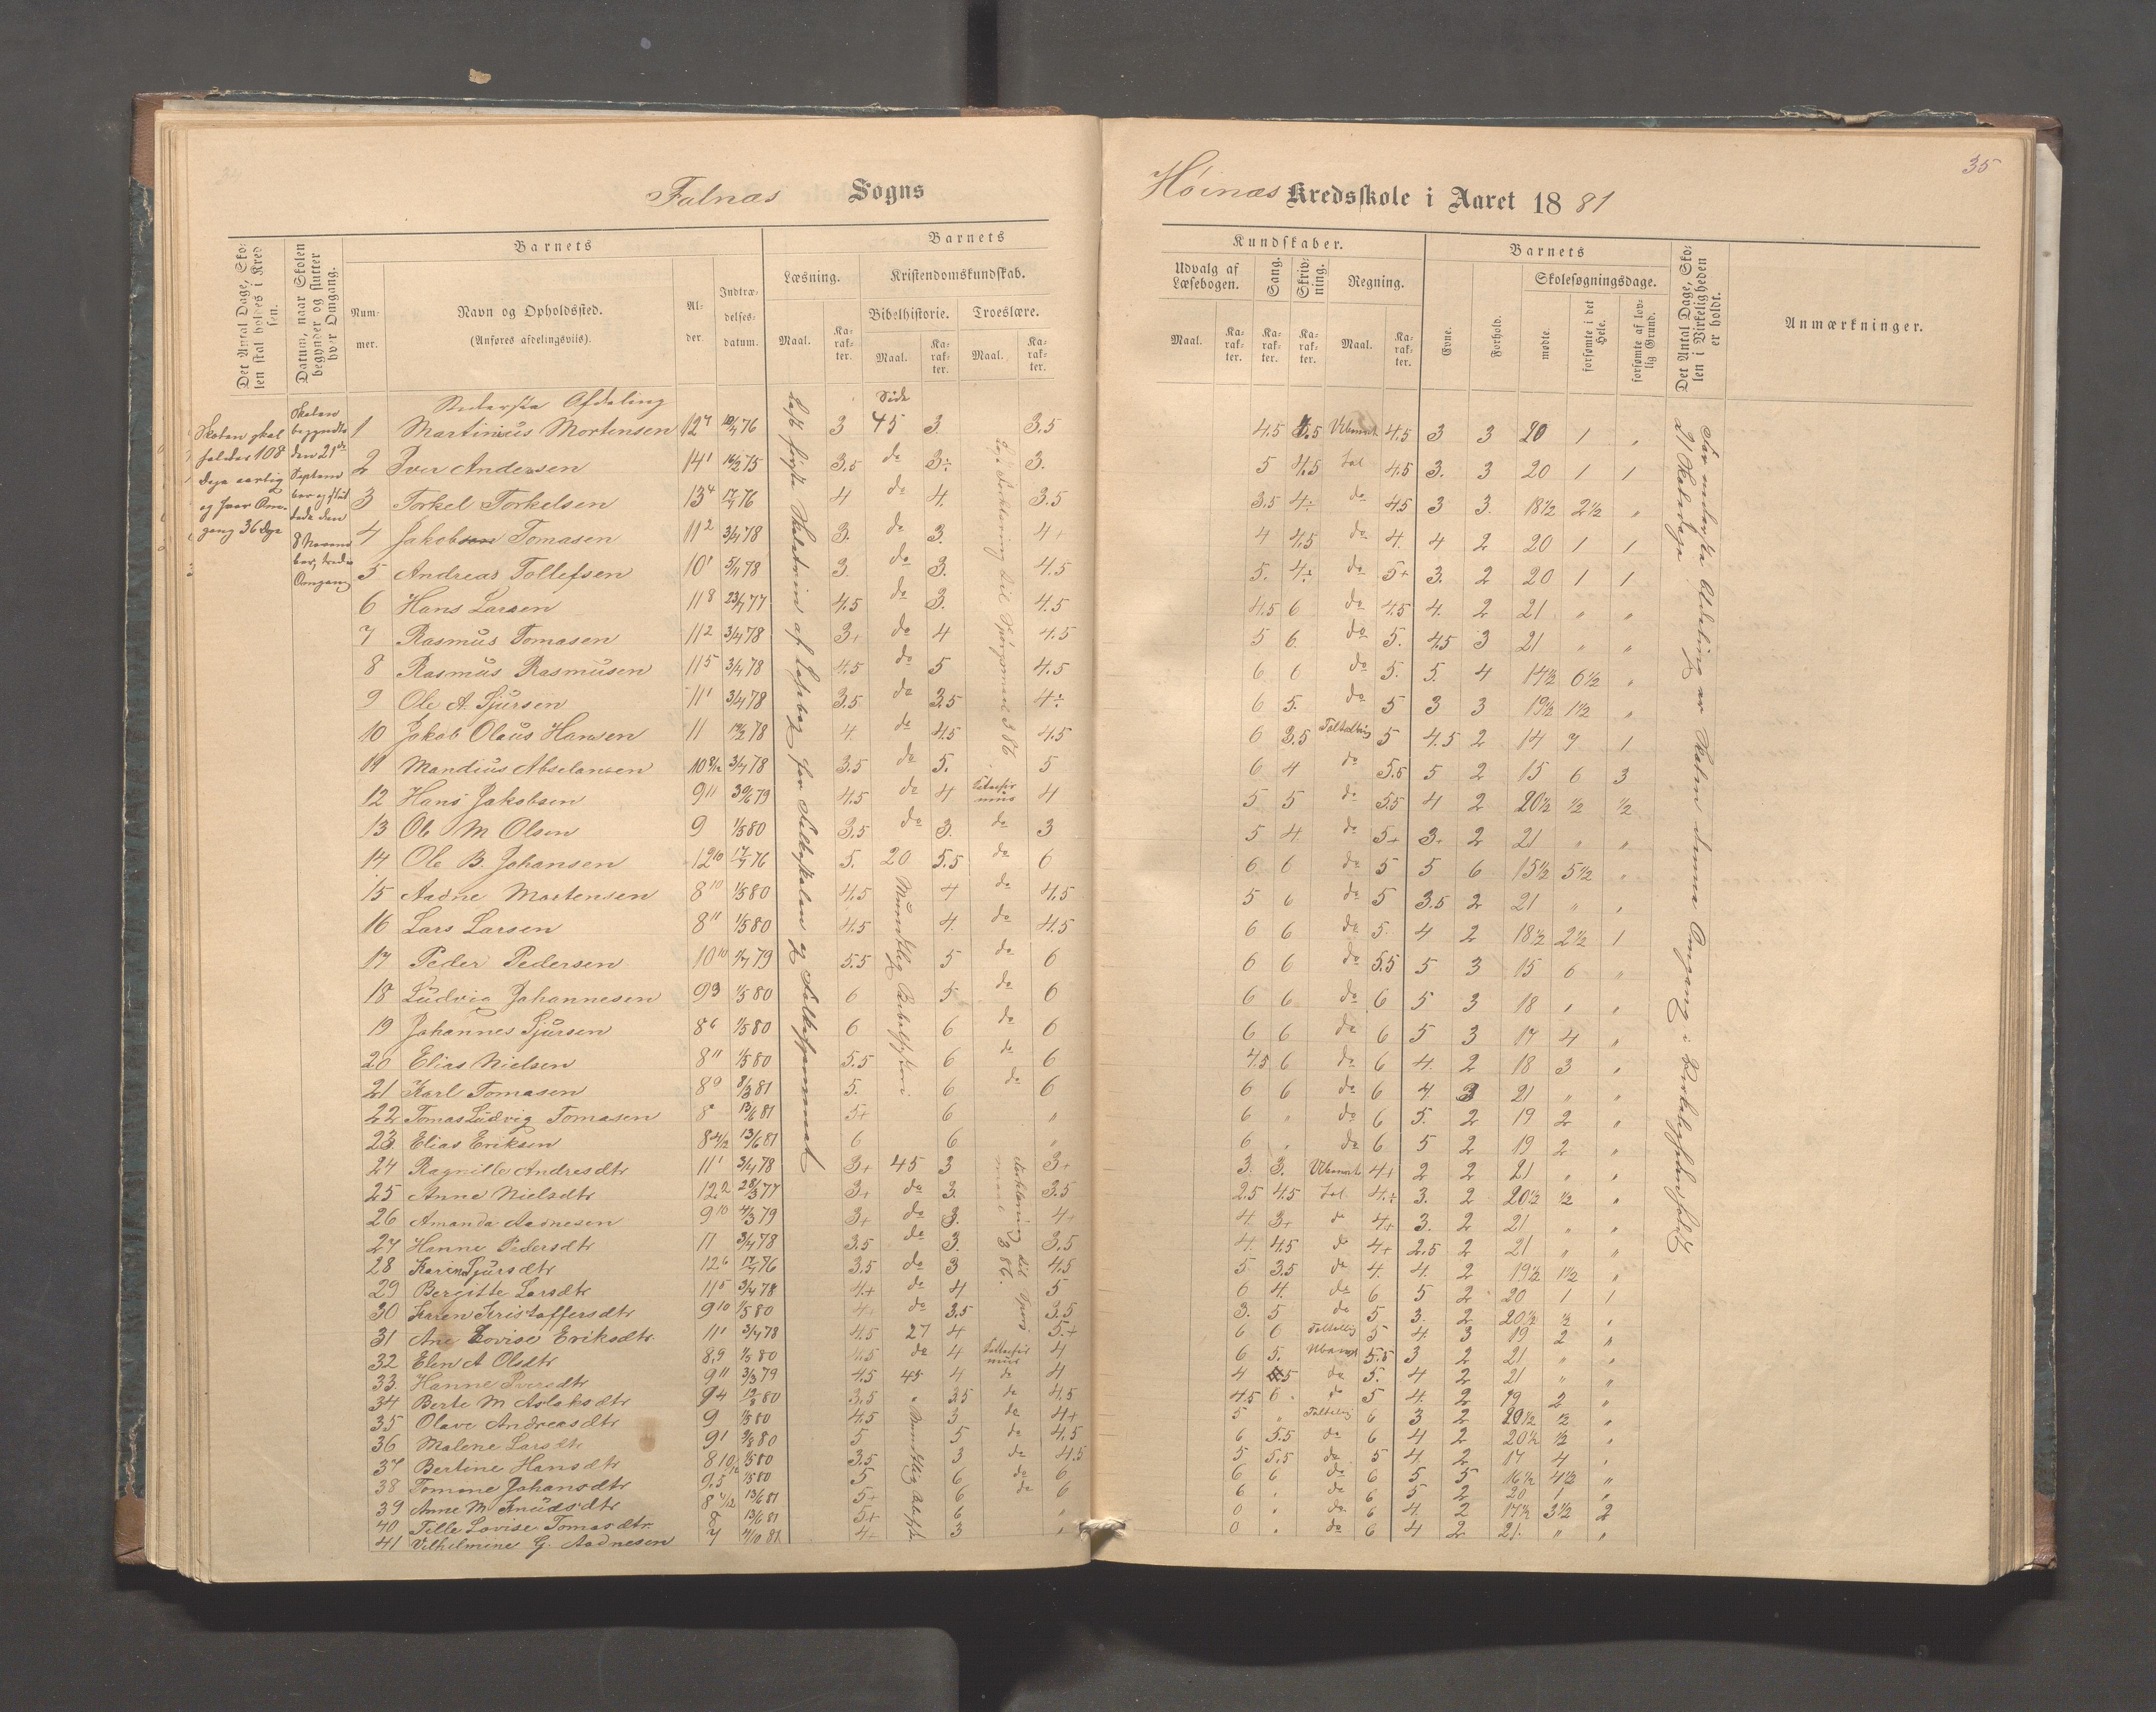 35
Falnæs Sogns
Høinæs Kredsskole i Aaret 1881
Det Antal Dage, Skolen skal holdes i Kredsen.
Datum, naar Skolen begynder og slutter hver Omgang.
Barnets
Nummer.
Navn og Opholdssted.
(Anføres afdelingsviis).
Alder
Indtrædelsesdatum.
Barnets
Læsning.
Kristendomskundskab.
Bibelhistorie. Troeslære.
Maal. Karakter. Maal. Karakter. Maal. Karakter.
Kundskaber.
Udvalg af Læsebogen. Sang. Skrivning. Regning.
Maal. Karakter. Karakter. Karakter. Maal. Karakter.
Barnets
Evne. Forhold.
Skolesøgningsdage.
mødte. forsømte i det Hele. forsømte af lovlig Grund.
Det Antal Dage, Skolen i Virkeligheden er holdt.
Anmærkninger.
Nederste Afdeling
Side
Skolen skal
holdes 108
Dage aarlig
og hver Om-
gang 36 Dge
Skolen
begyndte
den 21de
Septem
ber og slut
tede den
8 Novem
ber, tredie
Omgang
1 Martinius Mortensen 12 3 45 3. 3.5 4.5 4.5 3 3 20 1 "
2 Iver Andersen 14¹ 3.5 do 3÷ 3. 5 4.5 4.5 3. 3 20 1 1
3 Torkel Torkelsen 13⁴ 17/7 76 4 do 4. 3.5 3.5 4÷ do 4.5 3 3. 18½ 2½ "
4 Jakob Tomasen 11² 3/4 78 3. do 3. 4+ 4 4.5 do 4. 4 2 20 1 1
5 Andreas Tollefsen 10¹ 3. do 3. 4.5 5. 4÷ do 5+ 3. 2 20 1 1
6 Hans Larsen 11⁸ 23/7 77 4.5 do 3. 4.5 4.5 6 do 4.5 4. 2 21 " "
7 Rasmus Tomasen 11² 3/4 78 3+ do 4 4.5 5 6. do 5. 4.5 3 21 " "
8 Rasmus Rasmusen 11⁵ 3/4 78 4.5 do 5 4.5 6 6 do 5. 5. 4 14½ 6½ "
9 Ole A. Sjursen 11¹ 3/4 78 3.5 do 3.5 4÷ 6 5. do 5 3 3 19½ 1½ "
10 Jakob Olaus Hansen 11 4 do 4.5 4.5 6 3.5 5 4.5 2 14 7 1
11 Mandius Abselonsen 10 3/4 78 3.5 do 5. 5 6 4 do 5.5 5 2 15 6 3
12 Hans Jakobsen 9¹¹ 4.5 do 4 4 5 5 do 5.5 4 2 20½ ½ ½
13 Ole M Olsen 9 1/5 80 3.5 do 3. do 3 5 4. do 5+ 3+ 2 21 " "
14 Ole B. Johansen 12¹⁰ 17/7 76 5. 20 5.5 do 6 6 6 do 5 5 6 15½ 5½ "
15 Aadne Mortensen 8¹⁰ 1/5 80 4.5 4 do 4.5 5 6 do 5 3.5 2 21 " "
16 Lars Larsen 8¹¹ 1/5 80 4.5 4. do 4.5 6 6 do 5. 4 2 18½ 2½ 1
17 Peder Pedersen 10¹⁰ 5.5 5 do 6 6 6 do 5.5 5 3 15 6 "
18 Ludvig Johannesen 9³ 1/5 80 6 5 do 6 6 6 do 6 5 3 18 " "
19 Johannes Sjursen 8⁶ 1/5 80 6 6 do 6 6 6 do 6 5 3 17 4 "
20 Elias Nielsen 8¹¹ 1/5 80 5.5 6 do 6 4.5 6 do 6 4. 2 18 3 "
21 Karl Tomasen 8⁹ 8/3 81 5. 6 do 6 6 6 do 6 4 3 21 " "
22 Tomas Ludvig Tomasen 13/6 81 5+ 6 " 6 " do 6 5. 2 19 2 "
23 Elias Eriksen 13/6 81 6 6 " 6 " do 6 5 2 19 2 "
24 Ragnille Andresdtr 11¹ 3/4 78 3+ 45 3 3+ 3. 3. 4+ 2 2 21 " "
25 Anne Nielsdtr 12.² 28/3 77 3+ do 3. 3.5 2.5 4.5 4÷ 3. 2 20½ ½ "
26 Amanda Aadnesen 9¹⁰ 4/3 79 3+ do 3. 4+ 4. 3+ do 4+ 3. 2 21 " "
27 Hanne Pedersdtr 11 3/4 78 3.5 do 3. 3.5 4. 4.5 do 4+ 2.5 2 21 " "
28 Karina Sjursdtr 12⁶ 17/7 76 3.5 do 3 4.5 5 3.5 do 4. 4. 2 19½ 1½ "
29 Bergitte Larsdtr 11⁵ 3/4 78 4+ do 4 5 6 4. do 6 5 2 20 1 1
30 Karen Kristoffersdtr 9¹⁰ 1/5 80 4+ do 3.5 3.5 3. 5 do 5 3. 2 20½ ½ "
31 Ane Lovise Eriksdtr. 11¹ 3/4 78 4.5 27 4 5+ 6 6 5 4. 3 19 2 "
32 Elen A Olsdtr 8.9 1/5 80 4.5 do 4 4 6 5. 5.5 3 2 21 " "
33. Hanne Iversdtr 9¹¹ 3/3 79 4.5 45 4 do 4 4 5 do 5. 4 2 21 " "
34 Berte M Aslaksdtr 9⁴ 3.5 " 3.5 do 4.5 4.5 6. do 5 4. 2 19 2 "
35 Olave Andreasdtr 9 1/5 80 4.5 5 do 4+ 5 " 6 3 2 20½ ½ "
36 Malene Larsdtr 9¹ 5 5 do 4.5 6 5.5 do 6 4 2 20½ ½ "
37 Bertine Hansdtr 8 10/12 1/5 80 3.5 3 do 4.5 5 5.5 do 5 4. 2 17 4 "
38 Tomone Johansdtr 9,5 1/5 80 5 6 do 6 6 6 do 6 5 5 16½ 4½ "
39 Anne M. Knudsdtr 13/6 81 5+ 6 do 6 6 " do 6 5 2 20 1 "
40 Tille Lovise Tomasdtr. 13/6 81 5+ 6 " 0 " do 6 4. 2 17½ 3½ 2
41 Vilhelmine G. Aadnesen 7 4/10 81 4+ 3 " 0 " do 6 4 2 21. " "
Læst første Skoletrin af Læsebog for Folkeskolen og Folkehjemmet
Mundtlig Bibelhistorie
Forklaring til Spørgsmaal 386.
For nederste Afdeling er Skolen denne Omgang i Virkeligheden holdt
21 Skoledage